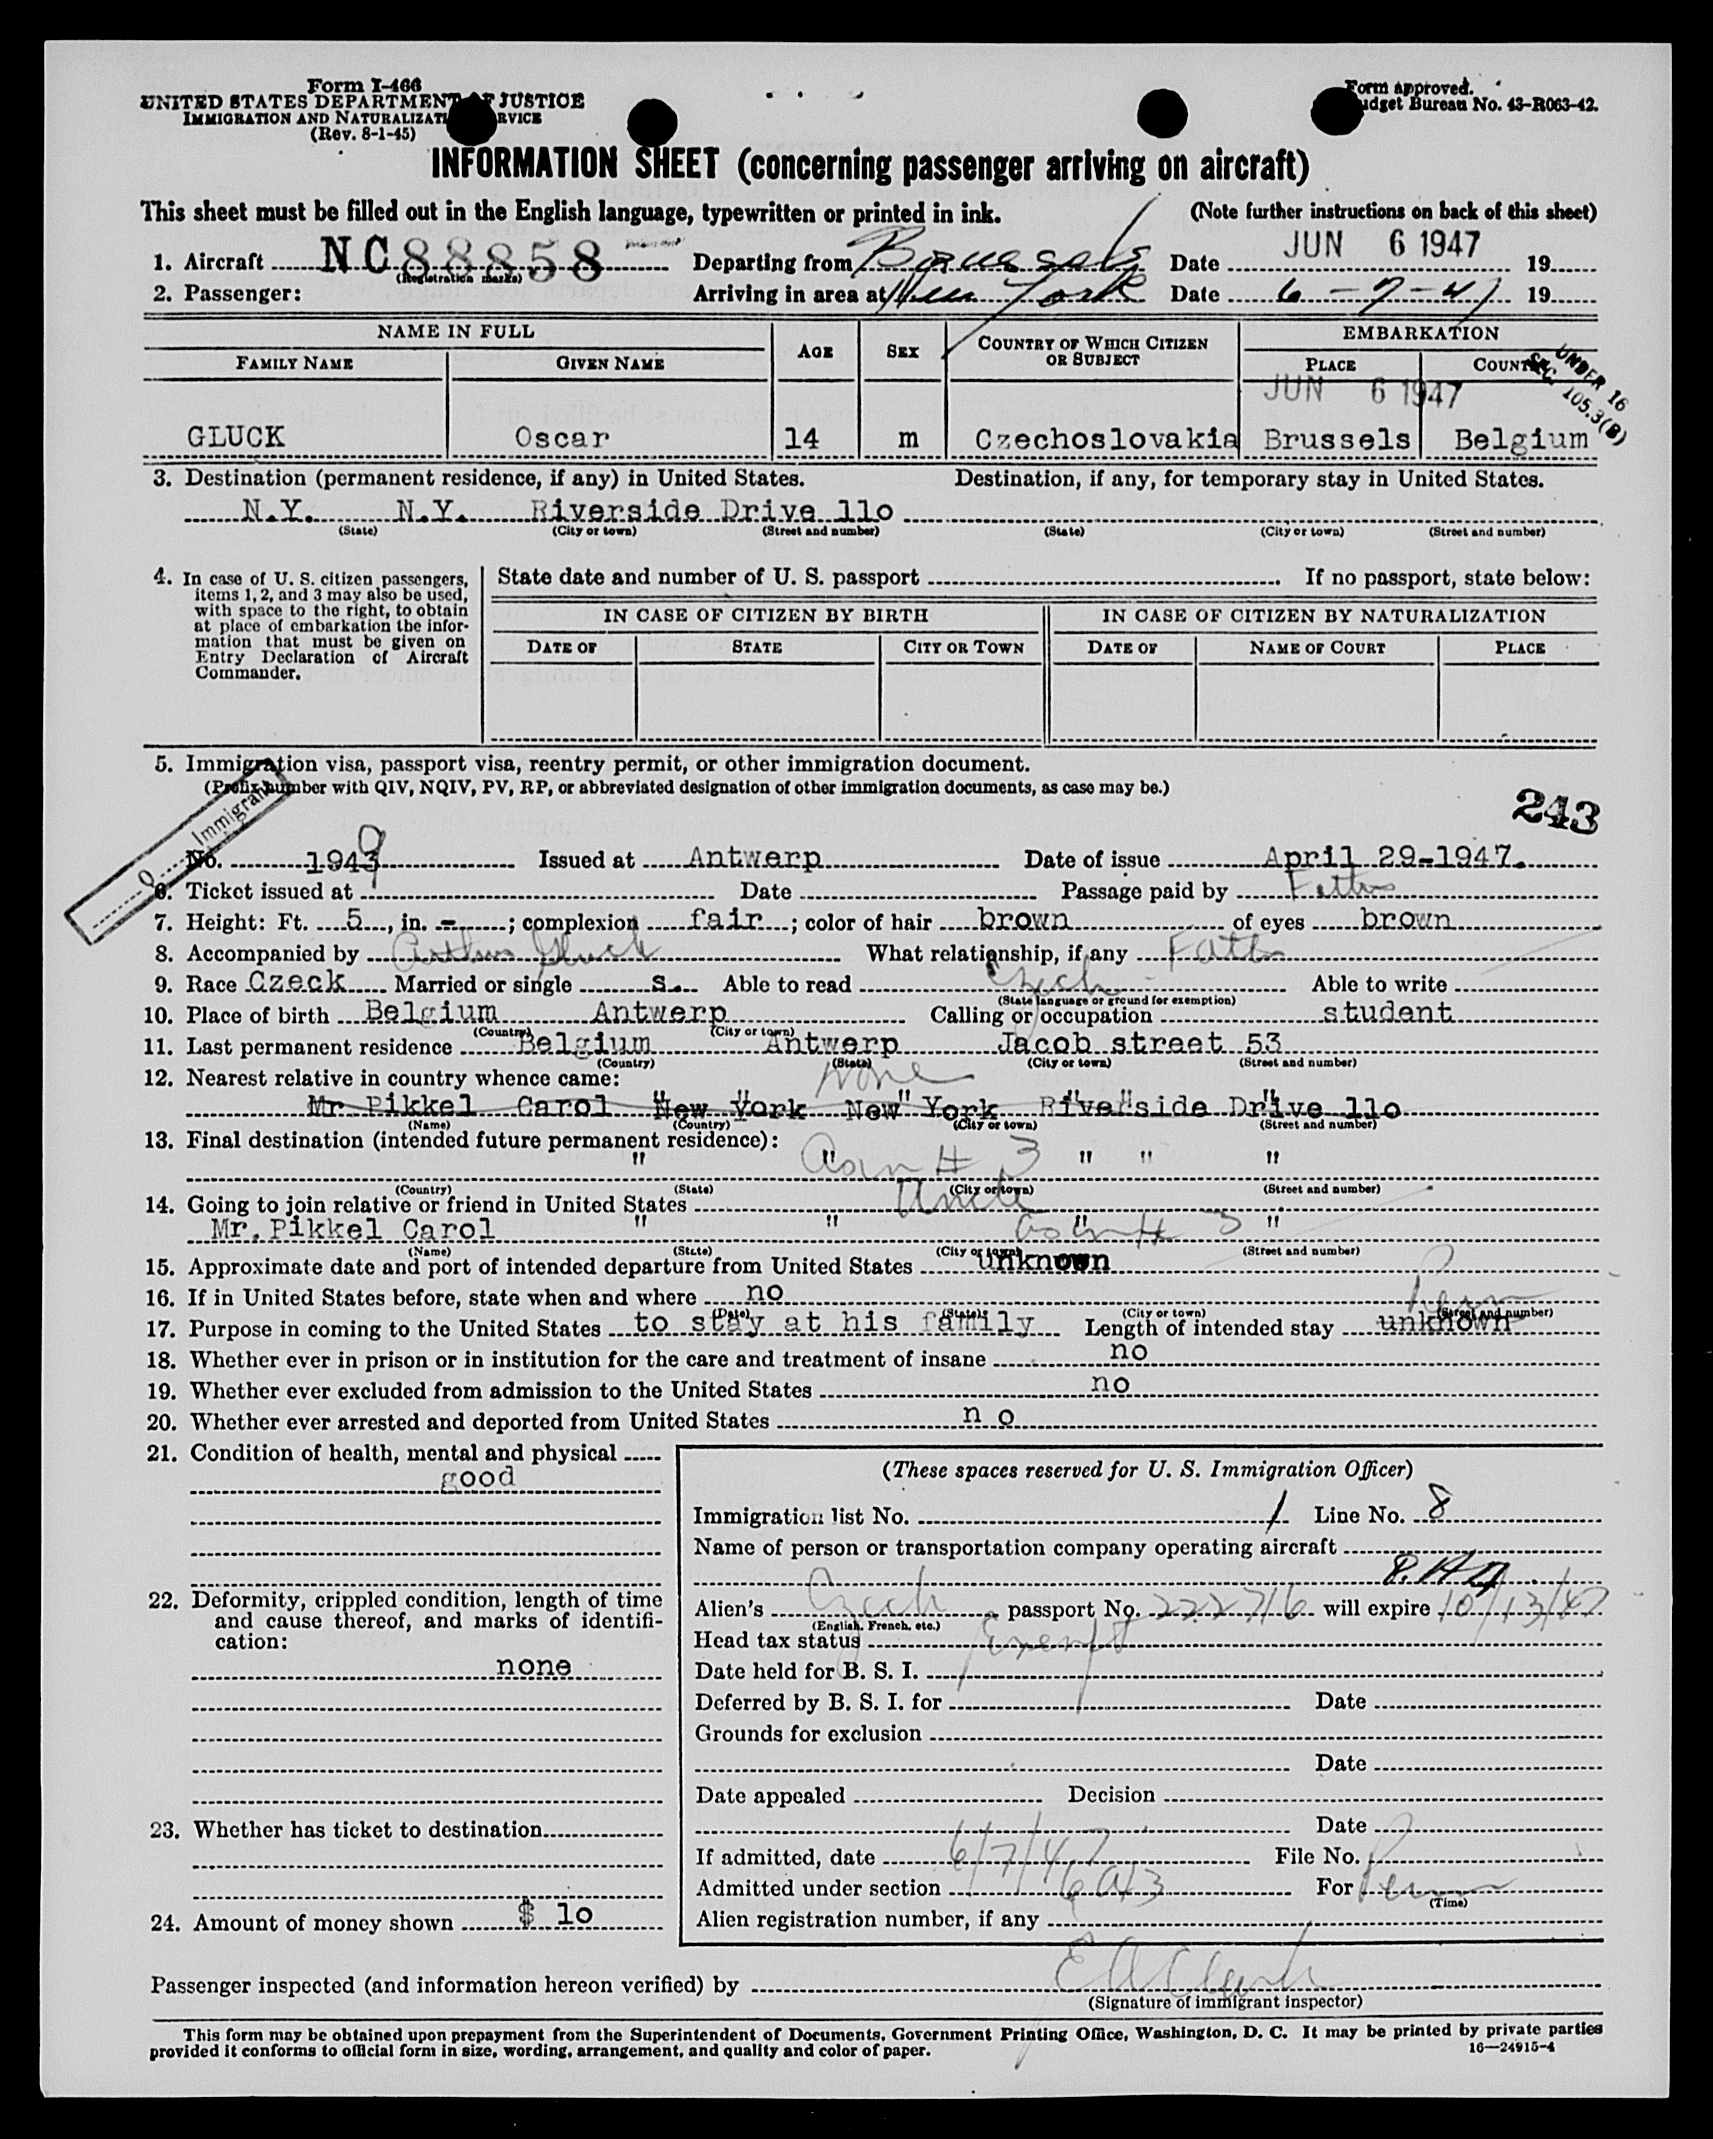 Form I-466
UNITED STATES DEPARTMENT OF JUSTICE
IMMIGRATION AND NATURALIZATION SERVICE
(Rev. 8-1-45)
Form approved.
Budget Bureau No. 43-R063-42.
INFORMATION SHEET (concerning passenger arriving on aircraft)
This sheet must be filled out in the English language, typewritten or printed in ink. (Note further instructions on back of this sheet)
1. Aircraft NC88858 Departing from Brussels Date JUN 6 1947 19
(Registration marks)
2. Passenger: Arriving in area at New York Date 6-7-47 19
NAME IN FULL AGE SEX COUNTRY OF WHICH CITIZEN OR SUBJECT EMBARKATION
FAMILY NAME GIVEN NAME PLACE COUNTRY
UNDER 16
SEC. 105.3(B)
JUN 6 1947
GLUCK Oscar 14 m Czechoslovakia Brussels Belgium
3. Destination (permanent residence, if any) in United States. Destination, if any, for temporary stay in United States.
N.Y. N.Y. Riverside Drive 11o
(State) (City or town) (Street and number) (State) (City or town) (Street and number)
4. In case of U. S. citizen passengers, items 1, 2, and 3 may also be used, with space to the right, to obtain at place of embarkation the information that must be given on Entry Declaration of Aircraft Commander.
State date and number of U. S. passport If no passport, state below:
IN CASE OF CITIZEN BY BIRTH IN CASE OF CITIZEN BY NATURALIZATION
DATE OF STATE CITY OR TOWN DATE OF NAME OF COURT PLACE
5. Immigration visa, passport visa, reentry permit, or other immigration document.
(Prefix number with QIV, NQIV, PV, RP, or abbreviated designation of other immigration documents, as case may be.)
Q Immigrant
243
No. 1949 Issued at Antwerp Date of issue April 29-1947.
6. Ticket issued at Date Passage paid by Father
7. Height: Ft. 5, in. -; complexion fair; color of hair brown of eyes brown
8. Accompanied by Arthur Gluck What relationship, if any Father
9. Race Czeck Married or single s. Able to read Czech Able to write
(State language or ground for exemption)
10. Place of birth Belgium Antwerp Calling or occupation student
(Country) (City or town)
11. Last permanent residence Belgium Antwerp Jacob street 53
(Country) (State) (City or town) (Street and number)
12. Nearest relative in country whence came: None
Mr Pikkel Carol New York New York Riverside Drive 11o
(Name) (Country) (City or town) (Street and number)
13. Final destination (intended future permanent residence):
" " as in # 3 " " "
(Country) (State) (City or town) (Street and number)
14. Going to join relative or friend in United States Uncle
Mr. Pikkel Carol " " " as in # 3 "
(Name) (State) (City or town) (Street and number)
15. Approximate date and port of intended departure from United States unknown
16. If in United States before, state when and where no
(Date) (State) (City or town) (Street and number)
17. Purpose in coming to the United States to stay at his family Length of intended stay unknown Perm
18. Whether ever in prison or in institution for the care and treatment of insane no
19. Whether ever excluded from admission to the United States no
20. Whether ever arrested and deported from United States n o
21. Condition of health, mental and physical
good
22. Deformity, crippled condition, length of time and cause thereof, and marks of identification:
none
23. Whether has ticket to destination
24. Amount of money shown $ 1o
(These spaces reserved for U. S. Immigration Officer)
Immigration list No. 1 Line No. 8
Name of person or transportation company operating aircraft
P.A.A.
Alien's Czech passport No. 222716 will expire 10/13/47
(English, French, etc.)
Head tax status Exempt
Date held for B. S. I.
Deferred by B. S. I. for Date
Grounds for exclusion
Date
Date appealed Decision
Date
If admitted, date 6/7/47 File No.
Admitted under section 6a3 For Perm
(Time)
Alien registration number, if any
Passenger inspected (and information hereon verified) by E A Clark
(Signature of immigrant inspector)
This form may be obtained upon prepayment from the Superintendent of Documents, Government Printing Office, Washington, D. C. It may be printed by private parties
provided it conforms to official form in size, wording, arrangement, and quality and color of paper.
16—24915-4